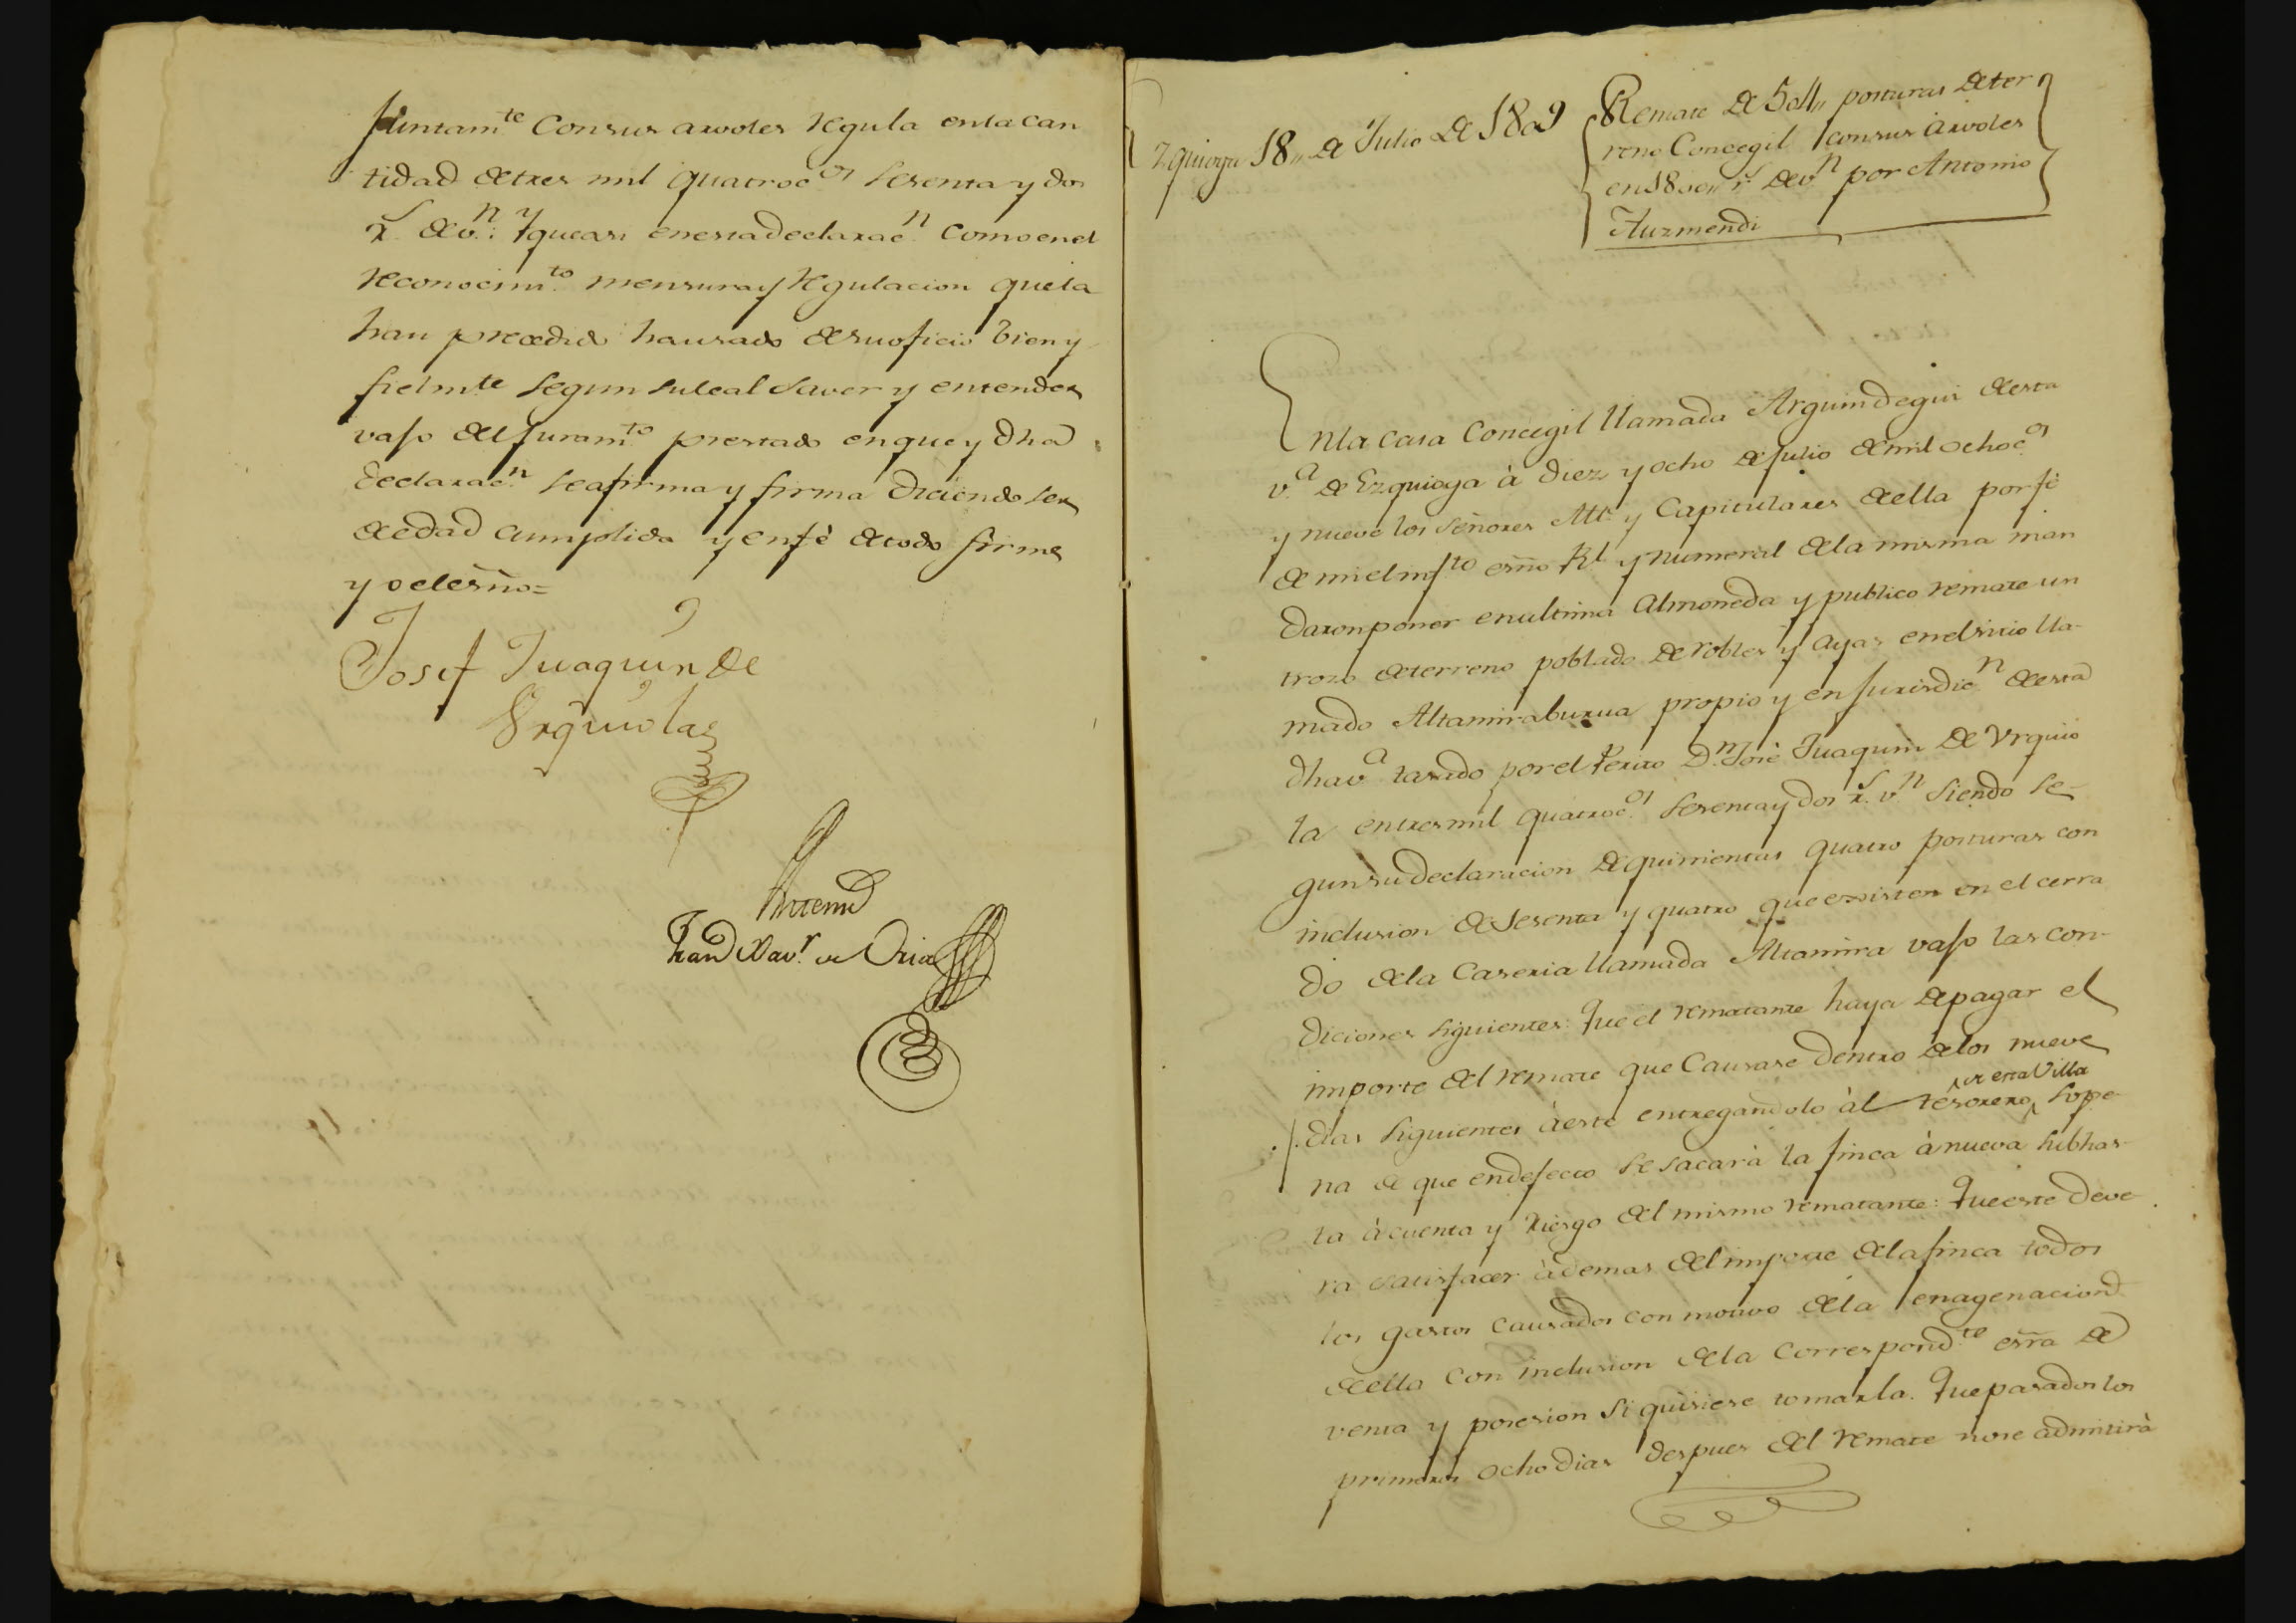 Juntam.te Con sus arvoles regula en la can
tidad de tres mil quatroc.os sesenta y dos
r.s de v.n: Y que asi en esta declarac.n como en el
reconocim.to mensura y regulacion que la
han precedido ha usado de su oficio bien y
fielm.te segun su leal saver y entender
vajo del Juram.to prestado en que y dha
declarac.n se afirma y firma diciendo ser
de edad cumplida y en fé de todo firmé
yo el esno=
Josef Juaquin de
Urquiola
Antemi
Fran.co Xav.r de Oria
Ezquioga 18,, de Julio de 1809
Remate de 504,, posturas de ter
reno Concegil con sus arvoles
en 1800,, r.s de v.n por Antonio
Yturmendi
En la casa Concegil llamada Arguindegui de esta
v.a de Ezquioga à diez y ocho de Julio de mil ochoc.os
y nueve los señores Alc.e y Capitulares de ella por fé
de mi el infto esno Rl y numeral de la misma man
daron poner en ultima Almoneda y publico remate un
trozo de terreno poblado de robles y ayas en el sitio lla-
mado Altamiraburua propio y en Jurisdic.n de esta
dha v.a tasado por el Perito D.n José Juaquin de Urquio
la en tres mil quatroc.os sesenta y dos r.s v.n siendo se-
gun su declaracion de quinientas quatro posturas con
inclusion de sesenta y quatro que existen en el cerra
do de la Caseria llamada Altamira vajo las con-
diciones siguientes: Que el rematante haya de pagar el
importe del remate que Causare dentro de los nueve
dias siguientes à este entregandolo àl tesorero de esta Villa so pe-
na de que en defecto se sacarà la finca à nueva subhas-
ta à cuenta y riesgo del mismo rematante: Que este deve-
ra satisfacer àdemas del importe de la finca todos
los gastos causados con motivo de la enagenacion
de ella con inclusion de la correspond.te esra de
venta y posesion si quisiere tomarla. Que pasados los
primeros ocho dias despues del remate no se admitirà